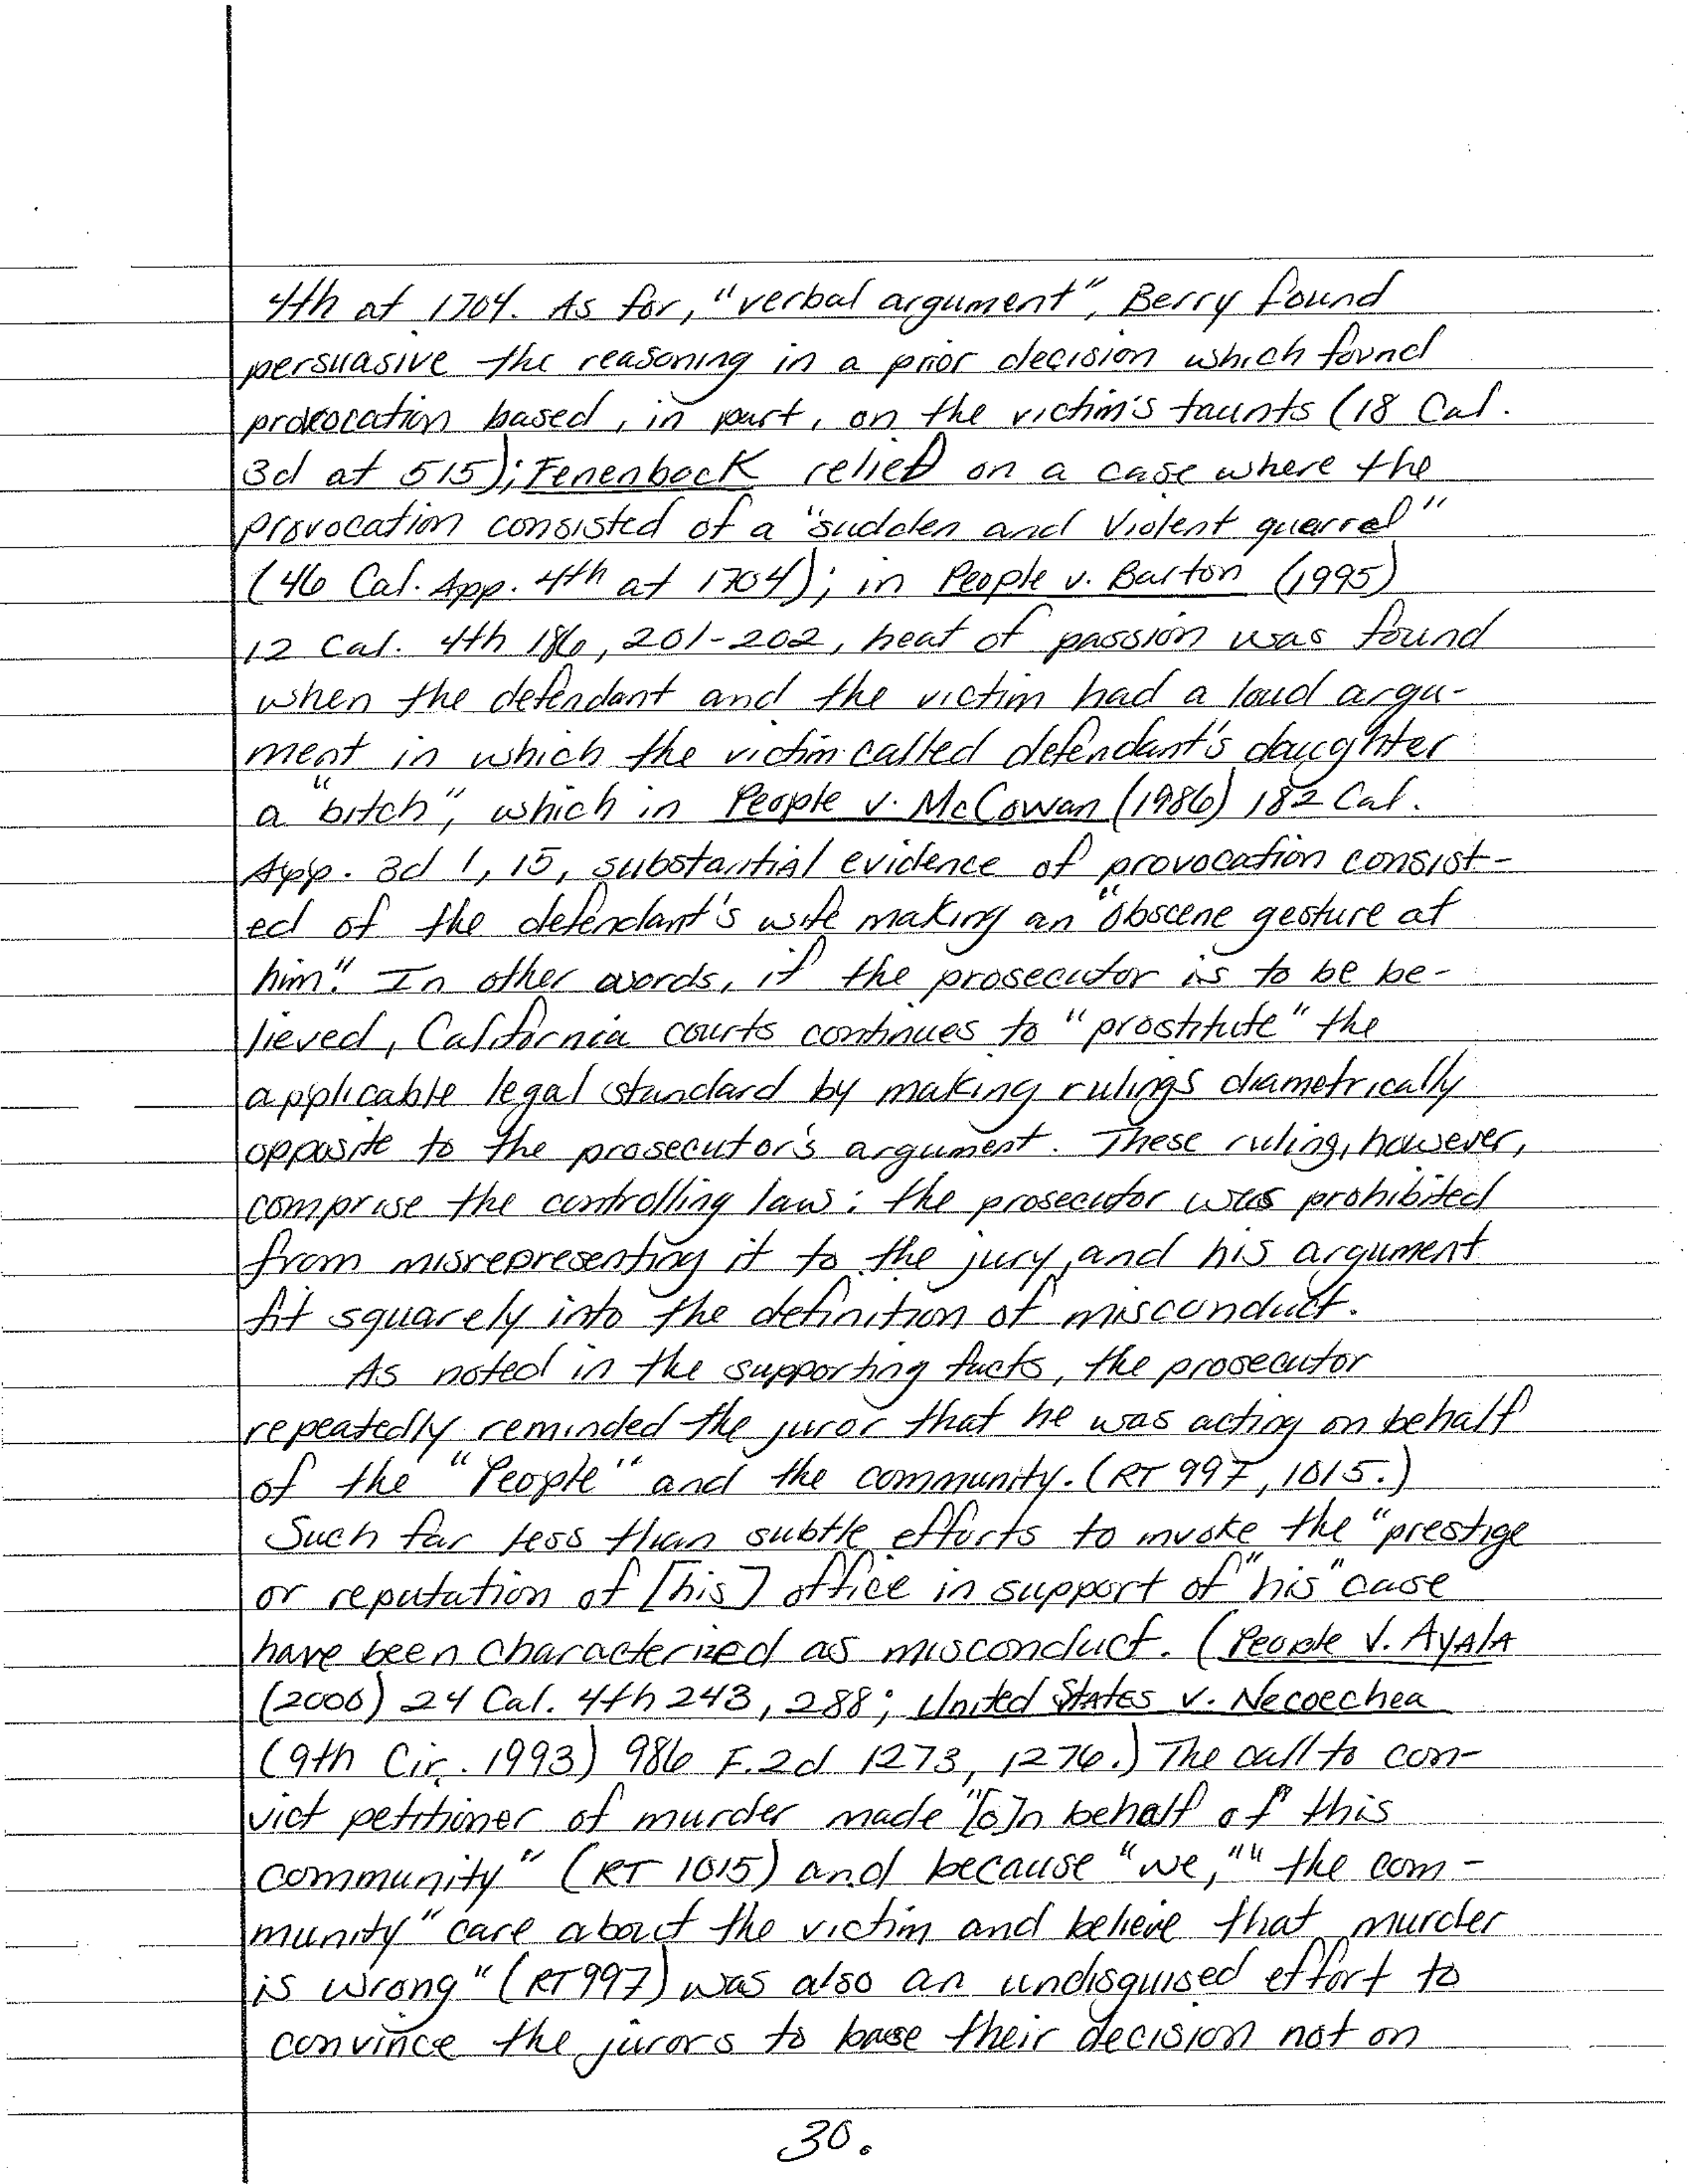 4th at 1704. As for, "verbal argument", Berry found
persuasive the reasoning in a prior decision which found
provocation based, in part, on the victim's taunts (18 Cal.
3d at 515); Fenenbock relied on a case where the
provocation consisted of a "sudden and violent quarrel"
(46 Cal. App. 4th at 1704); in People v. Barton (1995)
12 Cal. 4th 186, 201-202, heat of passion was found
when the defendant and the victim had a loud argu-
ment in which the victim called defendant's daughter
a "bitch", which in People v. McCowan (1986) 182 Cal.
App. 3d 1, 15, substantial evidence of provocation consist-
ed of the defendant's wife making an "obscene gesture at
him." In other words, if the prosecutor is to be be-
lieved, California courts continues to "prostitute" the
applicable legal standard by making rulings diametrically
opposite to the prosecutor's argument. These ruling, however,
comprise the controlling law: the prosecutor was prohibited
from misrepresenting it to the jury, and his argument
fit squarely into the definition of misconduct.
As noted in the supporting facts, the prosecutor
repeatedly reminded the juror that he was acting on behalf
of the "People" and the community. (RT 997, 1015.)
Such far less than subtle efforts to invoke the "prestige
or reputation of [his] office in support of "his" case
have been characterized as misconduct. (People v. Ayala
(2000) 24 Cal. 4th 243, 288; United States v. Necoechea
(9th Cir. 1993) 986 F.2d 1273, 1276.) The call to con-
vict petitioner of murder made "[o]n behalf of this
community" (RT 1015) and because "we," "the com-
munity" care about the victim and believe that murder
is wrong" (RT 997) was also an undisguised effort to
convince the jurors to base their decision not on
30.